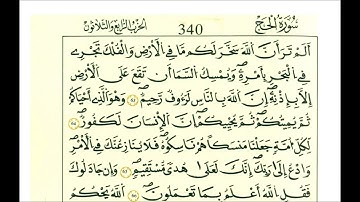 سُورَةُ الْحَجِّ 340 الحزب الرابع والثلاثون
اَلَمْ تَرَ أَنَّ اَللَّهَ سَخَّرَ لَكُم مَّا فِي اِلْأَرْضِ وَالْفُلْكَ تَجْرِي
فِي اِلْبَحْرِ بِأَمْرِهِ وَيُمْسِكُ السَّمَاءَ اَن تَقَعَ عَلَى اَلْأَرْضِ
إِلَّا بِإِذْنِهِ إِنَّ اَللَّهَ بِالنَّاسِ لَرَءُوفٌ رَّحِيمٌ وَهُوَ اَلَّذِي أَحْيَاكُمْ
ثُمَّ يُمِيتُكُمْ ثُمَّ يُحْيِيكُمْ إِنَّ اَلْإِنسَانَ لَكَفُورٌ
لِّكُلِّ أُمَّةٍ جَعَلْنَا مَنسَكًا هُمْ نَاسِكُوهُ فَلَا يُنَازِعُنَّكَ فِي اِلْأَمْرِ
وَادْعُ إِلَى رَبِّكَ إِنَّكَ لَعَلَى هُدًى مُّسْتَقِيمٍ وَإِن جَادَلُوكَ
فَقُلِ اِللَّهُ أَعْلَمُ بِمَا تَعْمَلُونَ اَللَّهُ يَحْكُمُ